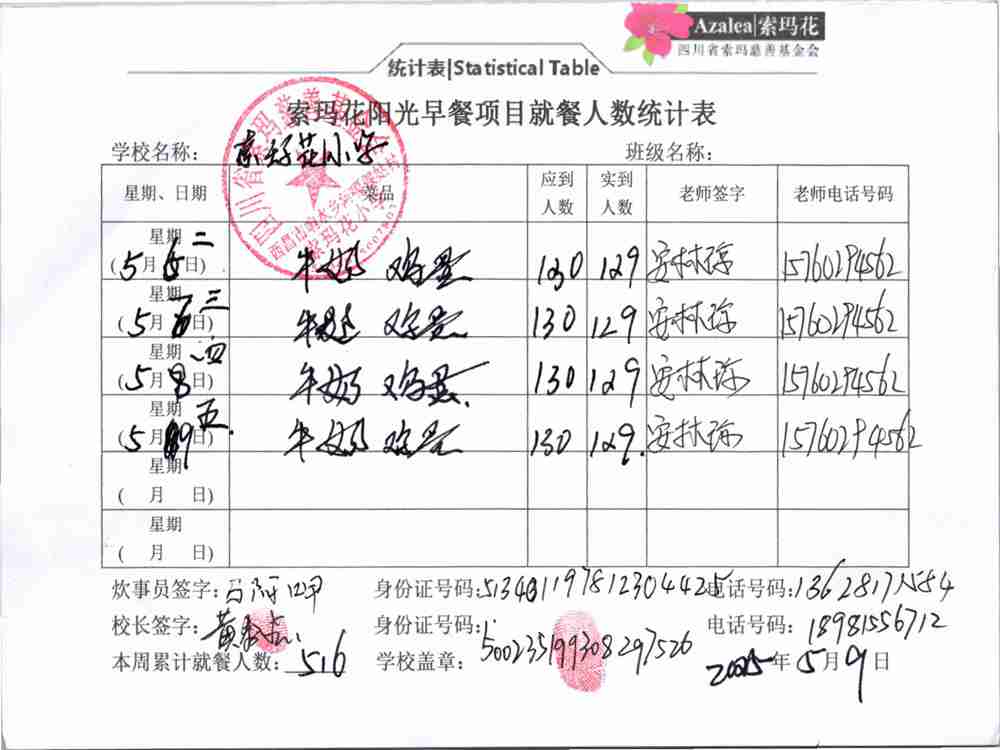 Azalea|索玛花
四川省索玛慈善基金会
统计表|Statistical Table
索玛花阳光早餐项目就餐人数统计表
学校名称: 索玛花小学 班级名称:
星期、日期 菜品 应到人数 实到人数 老师签字 老师电话号码
星期二 (5月6日) 牛奶 鸡蛋 130 129 安林琼 15760294562
星期三 (5月日) 牛奶 鸡蛋 130 129 安林琼 15760294562
星期四 (5月8日) 牛奶 鸡蛋 130 129 安林琼 15760294562
星期五 (5月9日) 牛奶 鸡蛋 130 129 安林琼 15760294562
星期 ( 月 日)
星期 ( 月 日)
炊事员签字: 身份证号码: 电话号码:
校长签字: 黄 身份证号码: 500235199308297526 电话号码: 18981556712
本周累计就餐人数: 516 学校盖章: 2025年5月9日